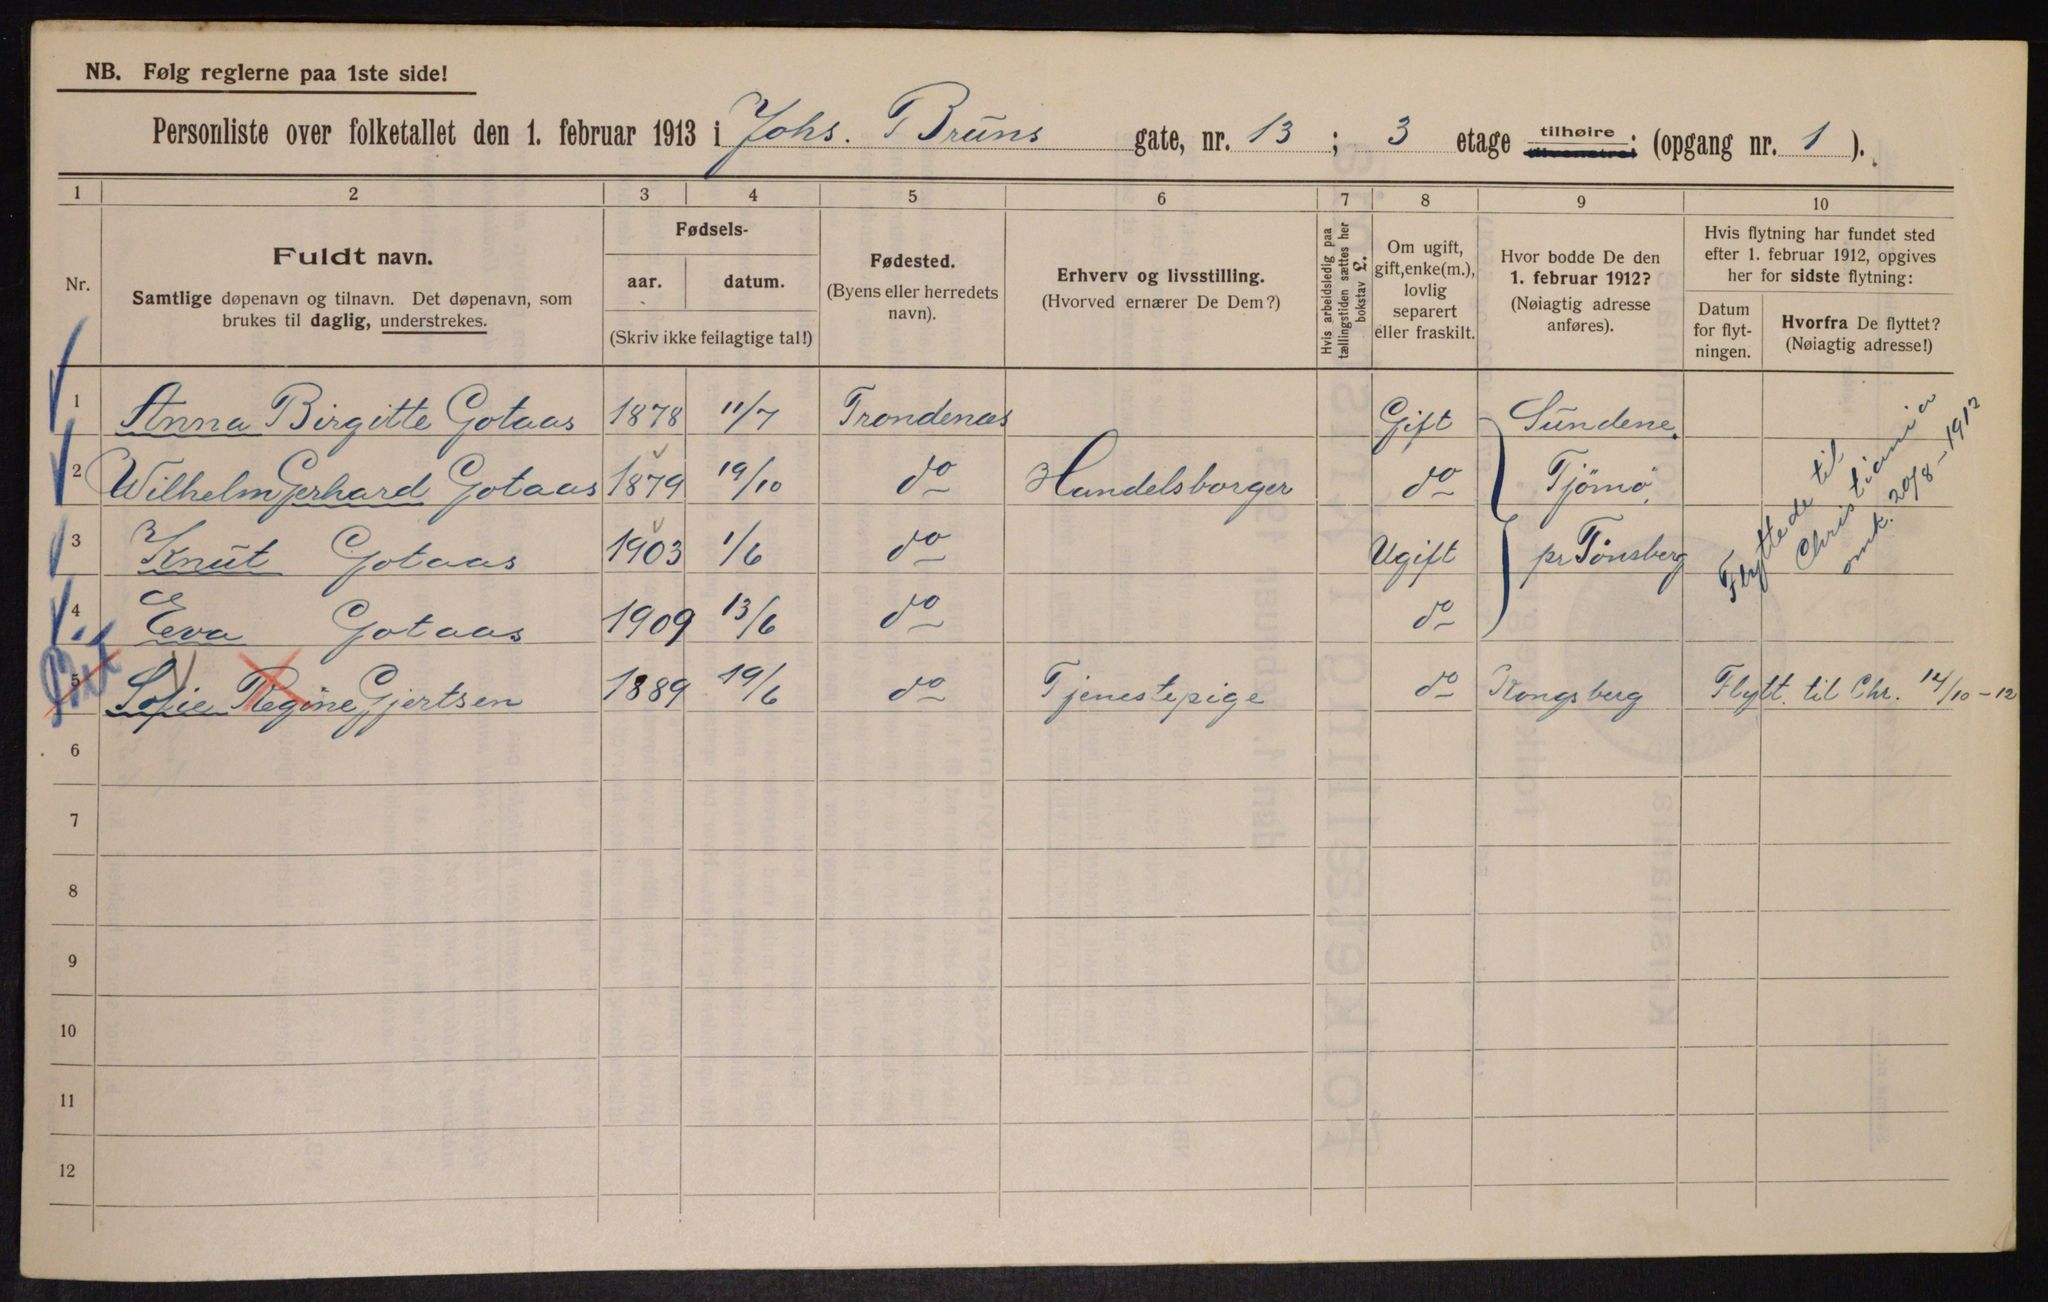 NB. Følg reglerne paa 1ste side!
Personliste over folketallet den 1. februar 1913 i Johs. Bruns gate, nr. 13 ; 3 etage tilhøire tilvenstre: (opgang nr. 1 ).
1 2 3 4 5 6 7 8 9 10
Nr.
Fuldt navn.
Samtlige døpenavn og tilnavn. Det døpenavn, som
brukes til daglig, understrekes.
Fødsels-
aar. datum.
(Skriv ikke feilagtige tal!)
Fødested.
(Byens eller herredets
navn).
Erhverv og livsstilling.
(Hvorved ernærer De Dem?)
Hvis arbeidsledig paa
tællingstiden sættes her
bokstav L.
Om ugift,
gift, enke(m.),
lovlig
separert
eller fraskilt.
Hvor bodde De den
1. februar 1912?
(Nøiagtig adresse
anføres).
Hvis flytning har fundet sted
efter 1. februar 1912, opgives
her for sidste flytning:
Datum
for flyt-
ningen.
Hvorfra De flyttet?
(Nøiagtig adresse!)
1 Anna Birgitte Gotaas 1878 11/7 Trondenæs Gift Sundene.
2 Wilhelm Gerhard Gotaas 1879 19/10 do Handelsborger do Tjømø,
3 Knut Gotaas 1903 1/6 do Ugift pr Tønsberg
4 Eva Gotaas 1909 13/6 do do
Flyttede til
Christiania
omk. 20/8-1912
5 Sofie Regine Gjertsen 1889 19/6 do Tjenestepige do Kongsberg Flytt. til Chr. 14/10-12
6
7
8
9
10
11
12